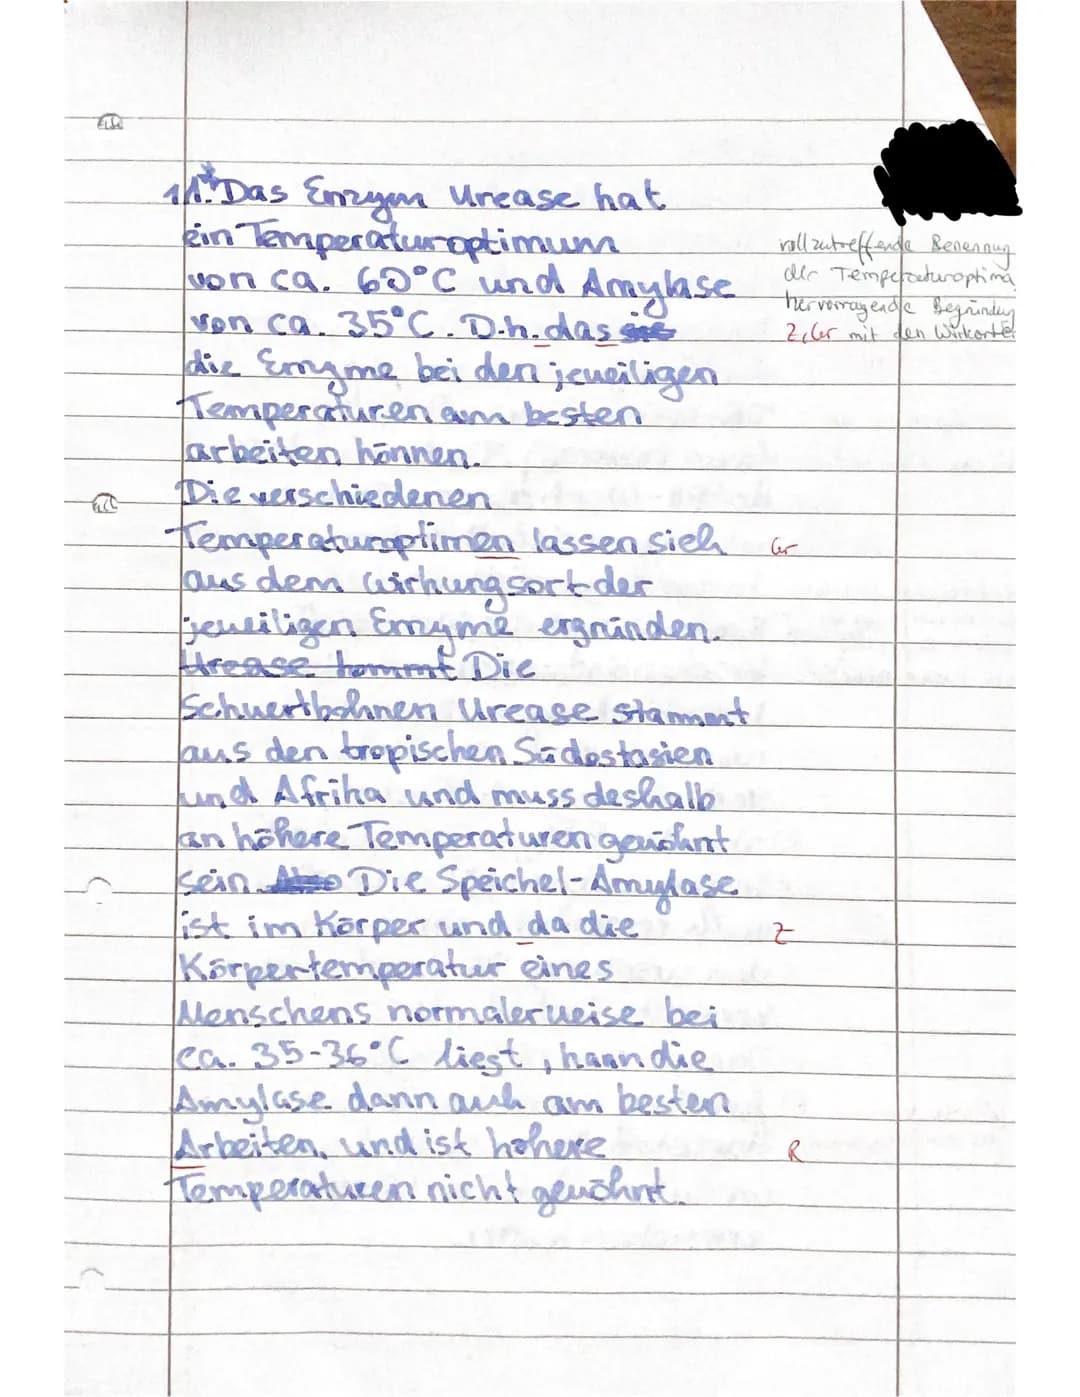 11.* Das Enzym Urease hat
ein Temperaturoptimum
von ca. 60°C und Amylase
von ca. 35°C. D.h. das
die Enzyme bei den jeweiligen
Temperaturen am besten
arbeiten können.
Die verschiedenen
Temperaturoptimen lassen sich
aus dem Wirkungsort der
jeweiligen Enzyme ergründen.
Urease kommt Die
Schwertbohnen Urease stammt
aus den tropischen Südostasien
und Afrika und muss deshalb
an höhere Temperaturen gewöhnt
sein. Also Die Speichel-Amylase
ist im Körper und da die
Körpertemperatur eines
Menschens normalerweise bei
ca. 35-36°C liegt, kann die
Amylase dann auch am besten
Arbeiten, und ist höhere
Temperaturen nicht gewöhnt.
voll zutreffende Benennung
der Temperaturoptima
hervorragende Begründung
Z, Gr mit den Wirkorten
Gr
Z
R